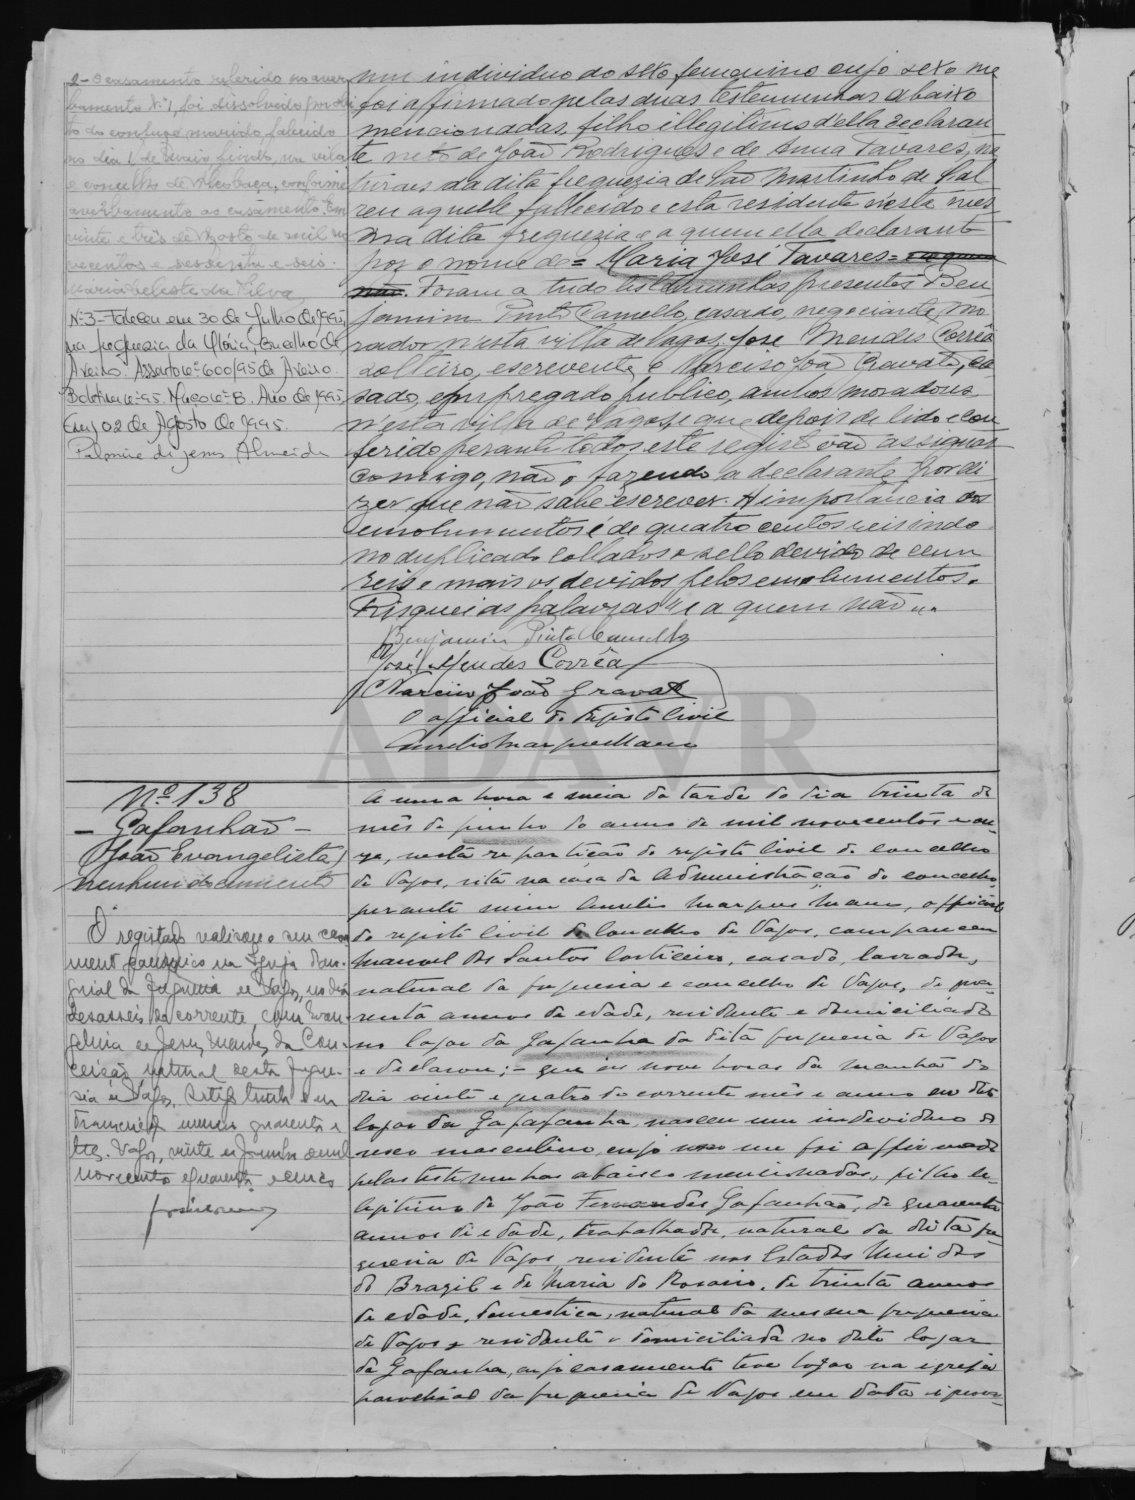 2- O casamento referido no aver-
bamento nº1, foi dissolvido por óbi-
to do conjuge marido falecido
no dia 1 de Maio findo, na vila
e concelho de Alcobaça, conforme
averbamento ao casamento. Em
vinte e três de Agosto de mil no-
vecentos e sessenta e seis.
Maria Celeste da Silva
Nº3- Faleceu em 30 de Julho de 1995,
na freguesia da Glória, Concelho de
Aveiro. Assento nº 600/95 de Aveiro.
Boletim nº 95. Maço nº 8. Ano de 1995.
Em, 02 de Agosto de 1995.
de Jesus Almeida
um individuo do sexo femenino cujo sexo me
foi affirmado pelas duas testemunhas abaixo
mencionadas, filho illegitimo d'ella declaran
te neto de João Rodrigues e de Anna Tavares, na
turaes da dita freguezia de São Martinho de Sal
reu aquelle fallecido e esta residente n'esta mes
ma dita freguezia e a quem ella declarante
poz o nome de = Maria José Tavares = e a quem
não. Foram a tudo testemunhas presentes Ben
jamim Pinto Camello, casado, negociante, mo
rador n'esta villa de Vagos, José Mendes Corrêa
solteiro, escrevente, e Narciso João Gravato, ca
sado, empregado publico, ambos moradores
n'esta villa de Vagos, e que depois de lido e con
ferido perante todos este registo vão assignar
commigo, não o fazendo a declarante por di
zer que não sabe escrever. A importancia dos
emolumentos é de quatro centos reis indo
no duplicado collados o sello devido de cem
reis e mais os devidos pelos emolumentos.
Risquei as palavras "e a quem não".
Benjamim Pinto Camello
José Mendes Corrêa
Narciso João Gravato
O official do registo civil
Aurelio Marques Mano
ADAVR
Nº 138
- Gafanhão -
João Evangelista,
nenhum documento
O registado realisou o seu casa-
mento canonico na Igreja Paro-
quial da freguesia de Vagos, no dia
desasseis do corrente, com Evan-
gelina de Jesus da Con-
ceição natural desta fregue-
sia de Vagos.
numero quarenta e
tres. Vagos, vinte de Junho de mil
novecentos e quarenta e cinco
A uma hora e meia da tarde do dia trinta do
mês de junho do anno de mil novecentos e on-
ze, nesta repartição do registo civil do concelho
de Vagos, sita na casa da Administração do concelho,
perante mim Aurelio Marques Mano, official
do registo civil do Concelho de Vagos, compareceu
Manuel dos Santos Corticeiro, casado, lavrador,
natural da freguesia e concelho de Vagos, de qua-
renta annos de edade, residente e domiciliado
no logar da Gafanha da dita freguesia de Vagos
e declarou: - que ás nove horas da manhã do
dia vinte e quatro do corrente mês e anno no dito
logar da Gafafanha, nasceu um individuo do
sexo masculino, cujo sexo me foi affirmado
pelas testemunhas abaixo mencionadas, filho le-
gitimo de João Fernandes Gafanhão, de quarenta
annos de edade, trabalhador, natural da dita fre
guesia de Vagos, residente nos Estados Unidos
do Brazil e de Maria do Rosario, de trinta annos
de edade, domestica, natural da mesma freguesia
de Vagos e residente e domiciliada no dito logar
da Gafanha, cujo casamento teve logar na igreja
parochial da freguesia de Vagos em data ignora-